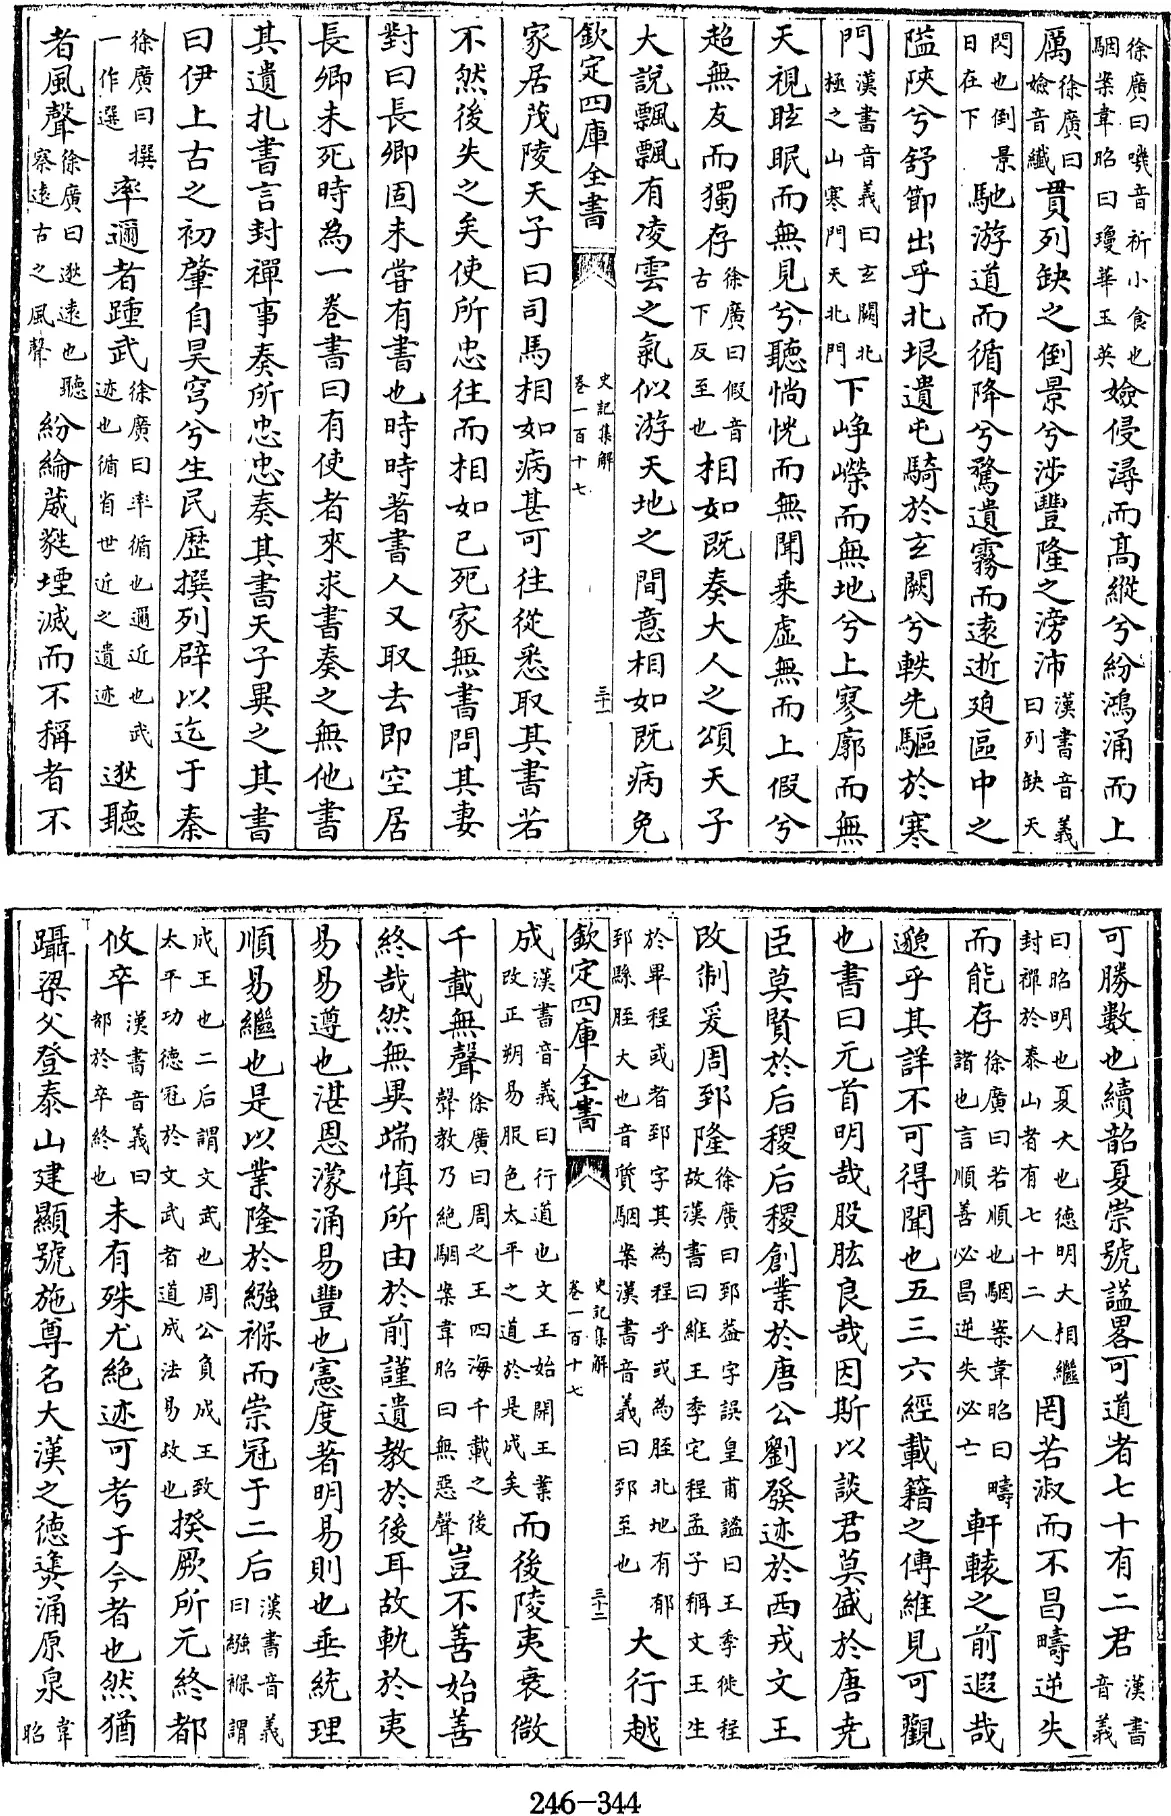 徐廣曰嘰音祈小食也駰案韋昭曰瓊華玉英嬐侵潯而髙縱兮紛鴻涌而上
厲徐廣曰嬐音纖貫列缺之倒景兮涉豐隆之滂沛漢書音義曰列缺天
閃也倒景日在下馳游道而循降兮騖遺霧而遠逝廹區中之
隘陜兮舒節出乎北垠遺屯騎於玄闕兮軼先驅於寒
門漢書音義曰玄闕北極之山寒門天北門下崢嶸而無地兮上寥廓而無
天視眩眠而無見兮聽惝恍而無聞乗虛無而上假兮
超無友而獨存徐廣曰假音古下反至也相如既奏大人之頌天子
大說飄飄有凌雲之氣似游天地之間意相如既病免
欽定四庫全書 史記集解卷一百十七 三十一
家居茂陵天子曰司馬相如病甚可往從悉取其書若
不然後失之矣使所忠往而相如已死家無書問其妻
對曰長卿固未嘗有書也時時著書人又取去即空居
長卿未死時為一卷書曰有使者來求書奏之無他書
其遺札書言封禪事奏所忠忠奏其書天子異之其書
曰伊上古之初肇自昊穹兮生民歴撰列辟以迄于秦
徐廣曰撰一作選率邇者踵武徐廣曰率循也邇近也武迹也循省世近之遺迹逖聽
者風聲徐廣曰逖遠也聽察遠古之風聲紛綸葳蕤堙滅而不稱者不
可勝數也續韶夏崇號諡畧可道者七十有二君漢書音義
曰昭明也夏大也德明大相繼封禪於泰山者有七十二人罔若淑而不昌疇逆失
而能存徐廣曰若順也駰案韋昭曰疇諸也言順善必昌逆失必亡軒轅之前遐哉
邈乎其詳不可得聞也五三六經載籍之傳維見可觀
也書曰元首明哉股肱良哉因斯以談君莫盛於唐尭
臣莫賢於后稷后稷創業於唐公劉發迹於西戎文王
改制爰周郅隆徐廣曰郅葢字誤皇甫謐曰王季徙程故漢書曰維王季宅程孟子稱文王生
於畢程或者郅字其為程乎或為胵北地有郁郅縣胵大也音質駰案漢書音義曰郅至也大行越
欽定四庫全書 史記集解卷一百十七 三十二
成漢書音義曰行道也文王始開王業改正朔易服色太平之道於是成矣而後陵夷衰微
千載無聲徐廣曰周之王四海千載之後聲教乃絶駰案韋昭曰無惡聲豈不善始善
終哉然無異端慎所由於前謹遺教於後耳故軌於夷
易易遵也湛恩濛涌易豐也憲度著明易則也垂統理
順易繼也是以業隆於繈褓而崇冠于二后漢書音義曰繈褓謂
成王也二后謂文武也周公負成王致太平功德冠於文武者道成法易故也揆厥所元終都
攸卒漢書音義曰都於卒終也未有殊尤絶迹可考于今者也然猶
躡梁父登泰山建顯號施尊名大漢之德㷭涌原泉韋昭